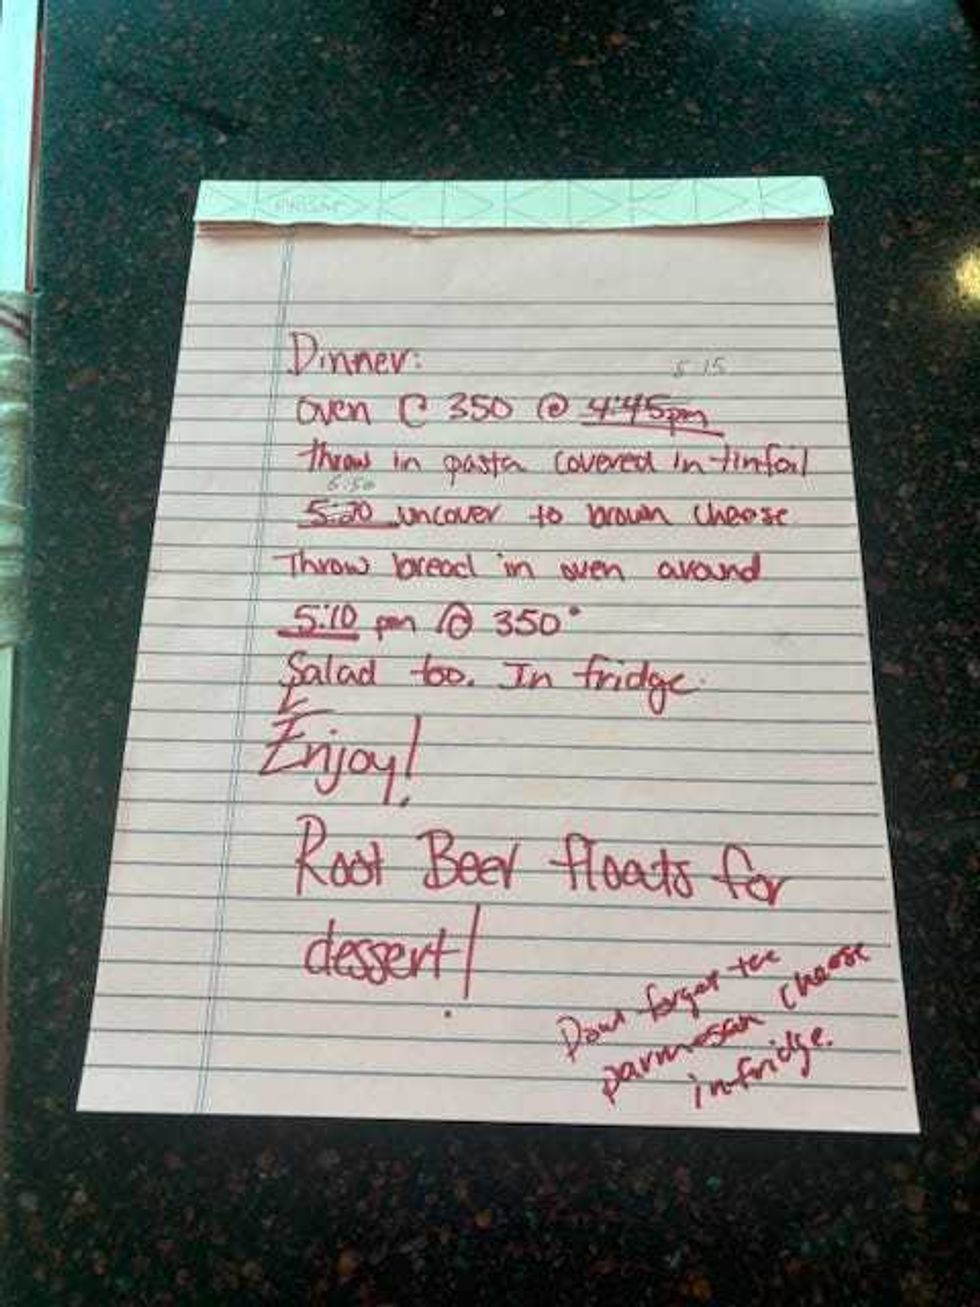 Dinner:
5:15
oven @ 350 @ 4:45pm
throw in pasta covered in tinfoil
5:50
5:20 uncover to brown cheese
Throw bread in oven around
5:10 pm @ 350°
Salad too. In fridge.
Enjoy!
Root Beer floats for
dessert!
forget
parmesan cheese
in fridge.